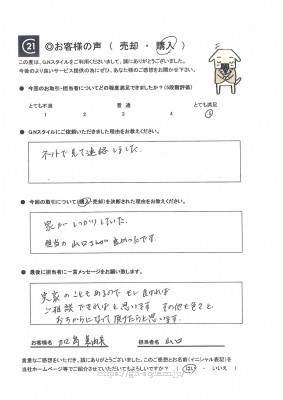 21 ◎お客様の声 ( 売却 ・ 購入 )
この度は、GNスタイルをご利用くださいまして、誠にありがとうございました。
今後のより良いサービス提供の為にぜひ、あなた様のご感想をお聞かせ下さい。
● 今回のお取引・担当者についてどの程度満足できましたか?(5段階評価)
とても不満 普通 とても満足
1 2 3 4 5
● GNスタイルにご依頼いただきました理由をお教えください。
ネットで見て連絡しました。
● 今回の取引について(購入・売却)を決断された理由をお教えください。
家がしっかりしていた。
担当の山口さんが良かったです。
● 最後に担当者に一言メッセージをお願い致します。
実家のこともあるので もし良ければ
ご相談できればと思います その他も色々と
おちからになって頂けたらと思います。
お客様名 担当者名 山口
貴重なご感想をいただき、誠にありがとうございました。このご感想とお名前(イニシャル表記)を
当社ホームページ等でご紹介させていただいてもよろしいですか? ( はい ・ いいえ )